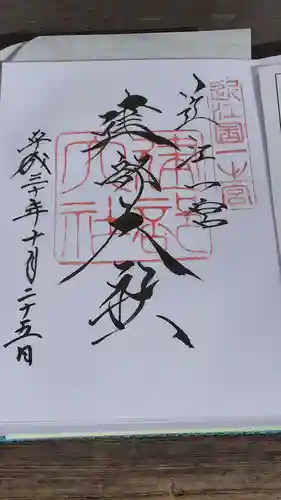 近江一宮
建部大社
平成三十年十月二十五日
近江国一之宮
建部大社